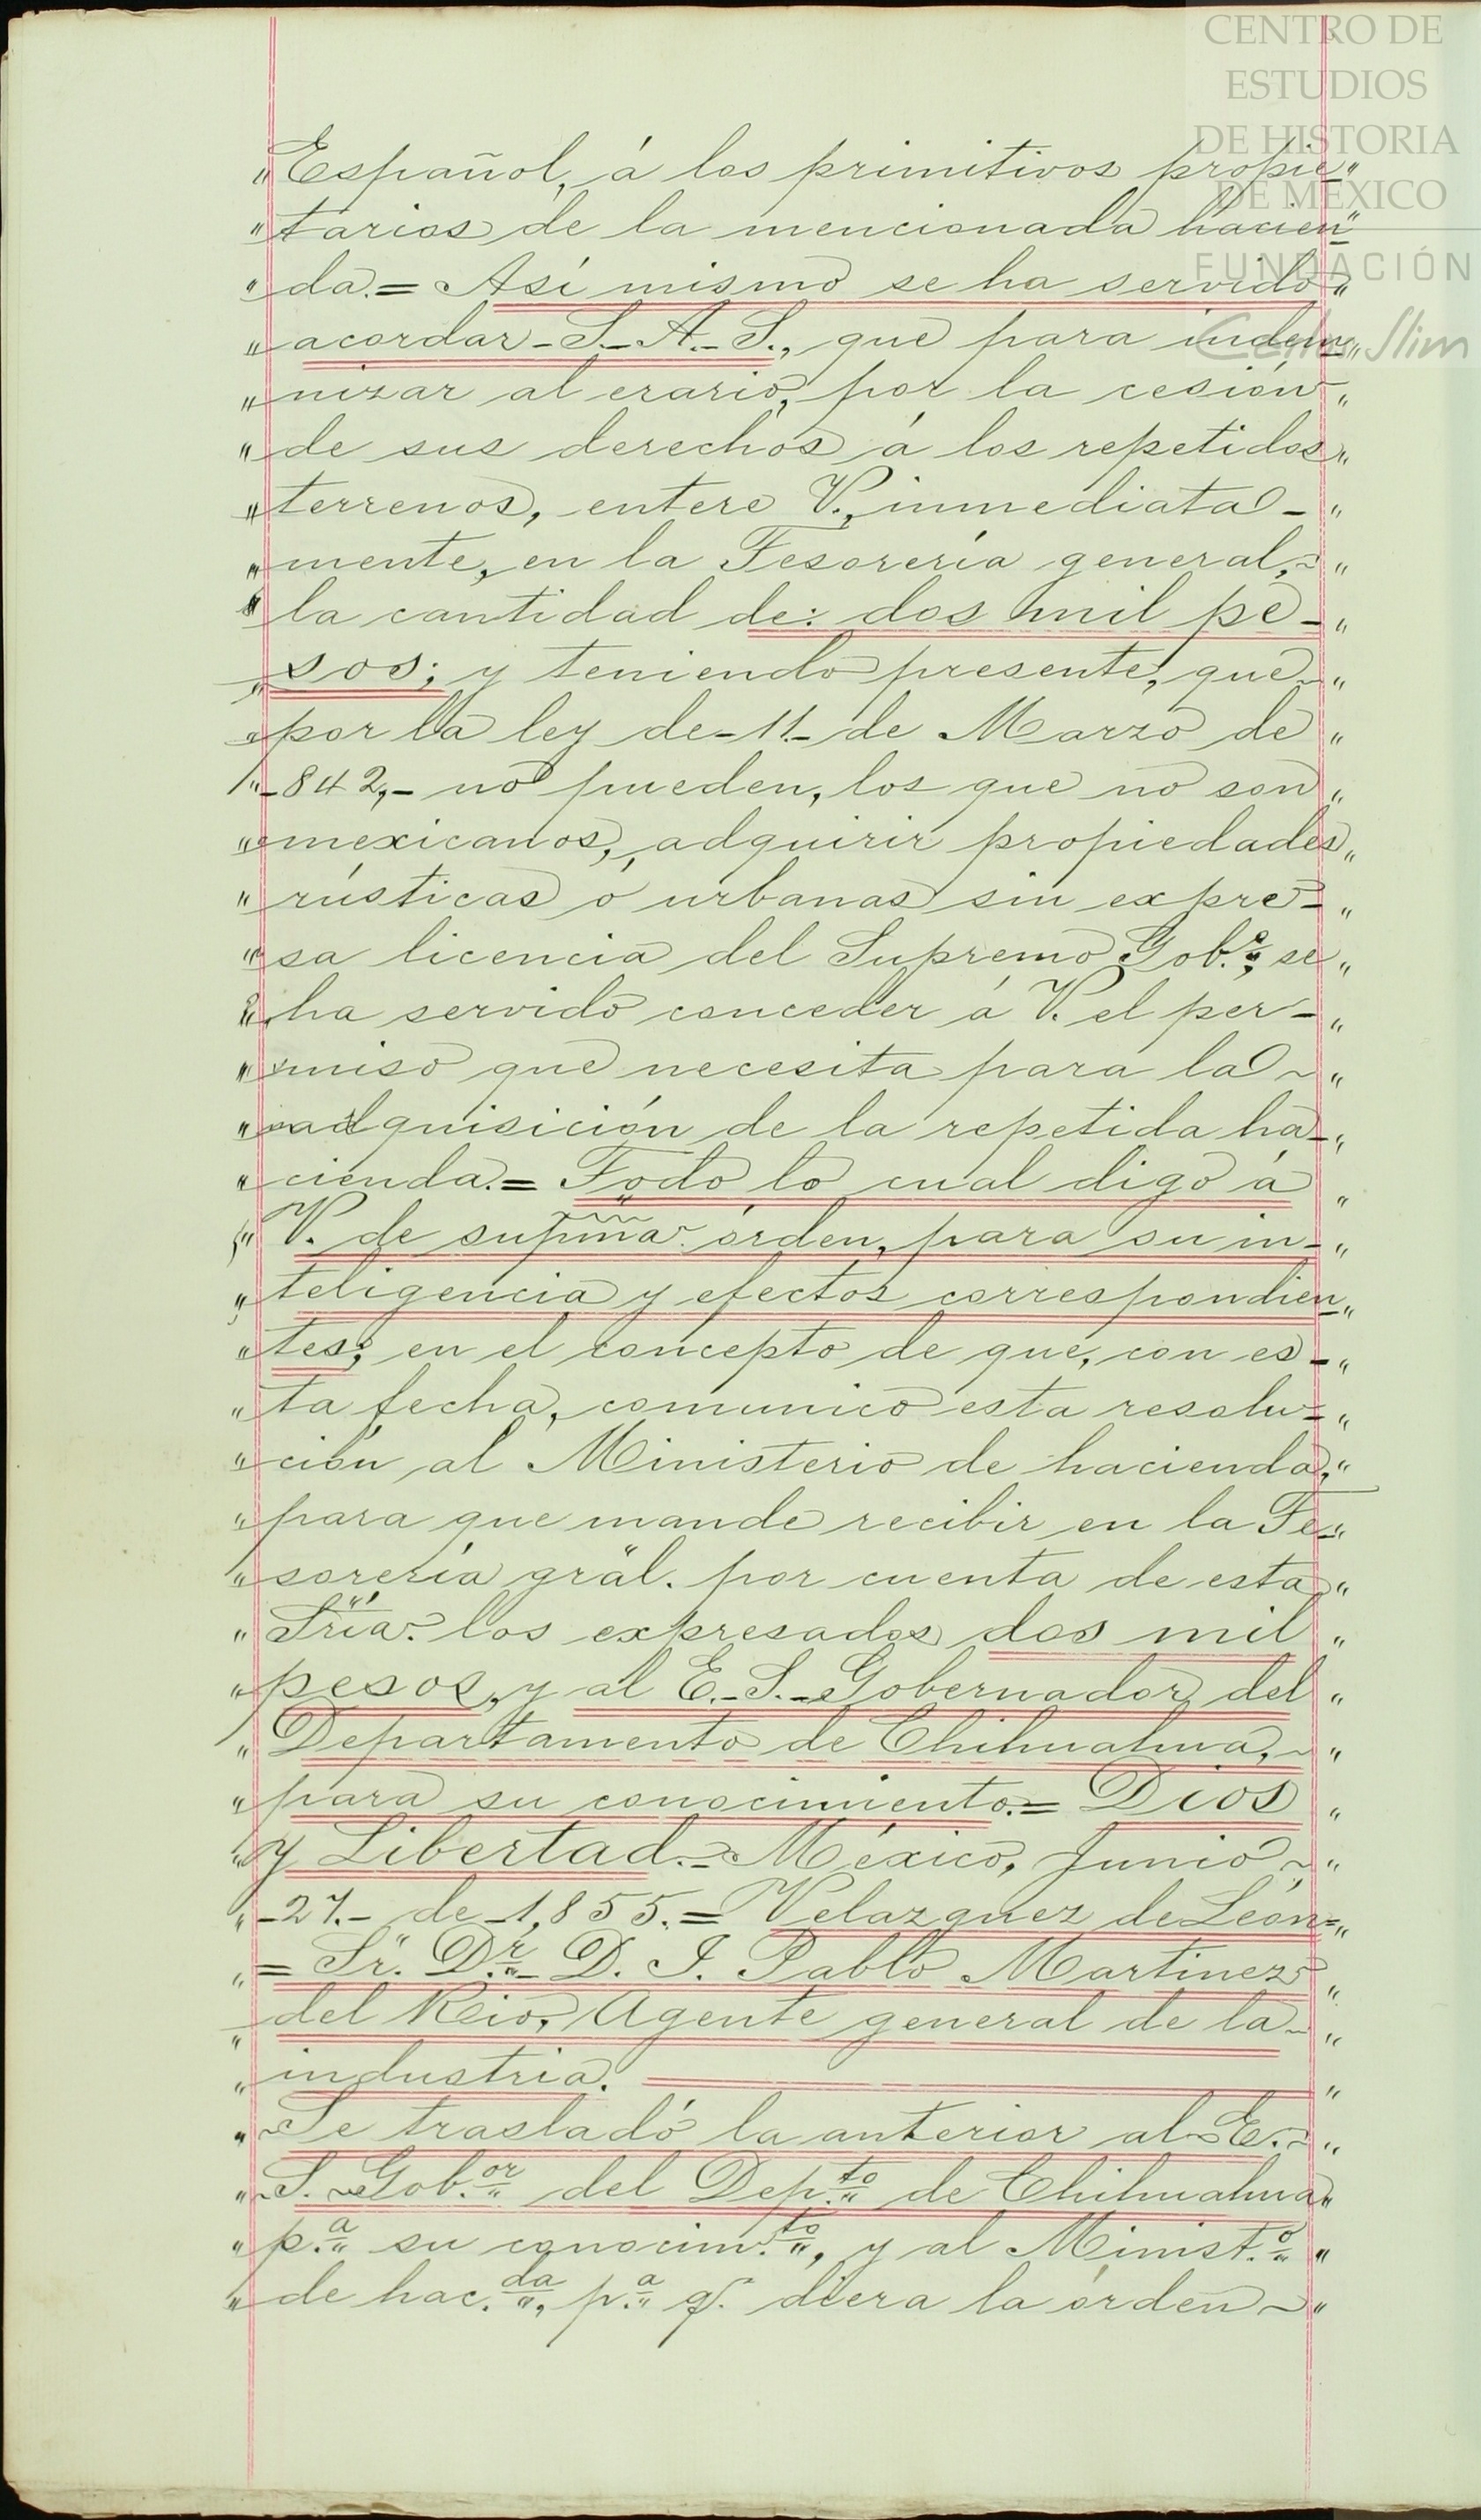 CENTRO DE
ESTUDIOS
DE HISTORIA
DE MÉXICO
FUNDACIÓN
Carlos Slim
„Español, á los primitivos propie-"
"tarios de la mencionada hacien-"
"da.= Así mismo se ha servido"
„acordar-S.-A.-S., que para indem-„
„nizar al erario, por la cesión„
"de sus derechos á los repetidos„
"terrenos, entere V., inmediata-„
„mente, en la Tesorería general,~„
"la cantidad de: dos mil pe-„
„sos; y teniendo presente, que~„
"por la ley de-11.-de Marzo de„
1"-842,-no pueden, los que no son„
"mexicanos, adquirir propiedades„
"rústicas ó urbanas sin expre-„
"sa licencia del Supremo Gob.º, se„
"ha servido conceder á V. el per-„
"miso que necesita para la~„
"adquisición de la repetida ha-„
"cienda.= Todo lo cual digo á„
" V. de supma. órden, para su in-„
„teligencia y efectos correspondien-„
"tes; en el concepto de que, con es-„
"ta fecha, comunico esta resolu-„
"ción al Ministerio de hacienda,"
"para que mande recibir en la Te-"
"sorería gral. por cuenta de esta"
"Sria. los expresados dos mil„
"pesos, y al E.-S.-Gobernador del„
"Departamento de Chihuahua,~„
"para su conocimiento.= Dios„
"y Libertad.= México, Junio~„
"-27.-de-1,855.= Velazquez de León=„
"= Sr. Dr.- D. J. Pablo Martinez„
"del Reio, Agente general de la~„
"industria.„
"Se trasladó la anterior al E.~„
"S. Gob.or del Dep.to de Chihuahua"
"p.a su conocim.to, y al Minist.o"
"de hac.da, p.a q. diera la órden~"